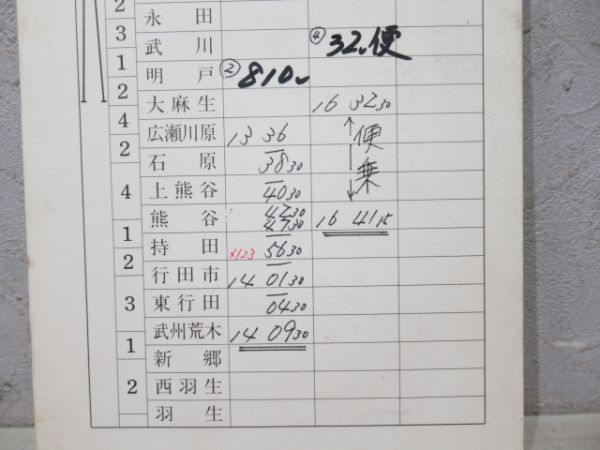 2
永田
3
武川 ④ 32, 便
1
明戸 ② 810
2
大麻生 16 32 30
4
広瀬川原 13 36 便
2
石原 38 30
4
上熊谷 40 30 乗
熊谷 42 30 16 41 15
47 30
1
持田 ×123 56 30
2
行田市 14 01 30
3
東行田 04 30
武州荒木 14 09 30
1
新郷
2
西羽生
羽生